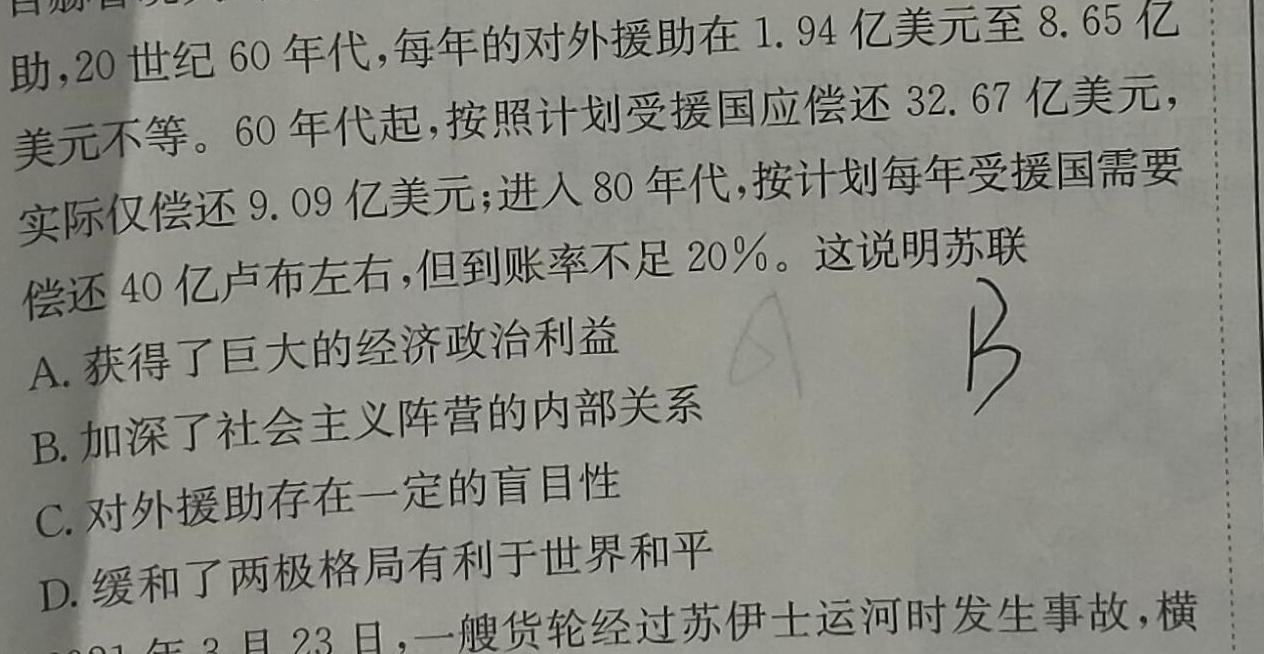 助,20 世纪 60 年代,每年的对外援助在 1.94 亿美元至 8.65 亿
美元不等。60 年代起,按照计划受援国应偿还 32.67 亿美元,
实际仅偿还 9.09 亿美元;进入 80 年代,按计划每年受援国需要
偿还 40 亿卢布左右,但到账率不足 20%。这说明苏联
A. 获得了巨大的经济政治利益
B. 加深了社会主义阵营的内部关系
B
C. 对外援助存在一定的盲目性
D. 缓和了两极格局有利于世界和平
年 3 月 23 日,一艘货轮经过苏伊士运河时发生事故,横